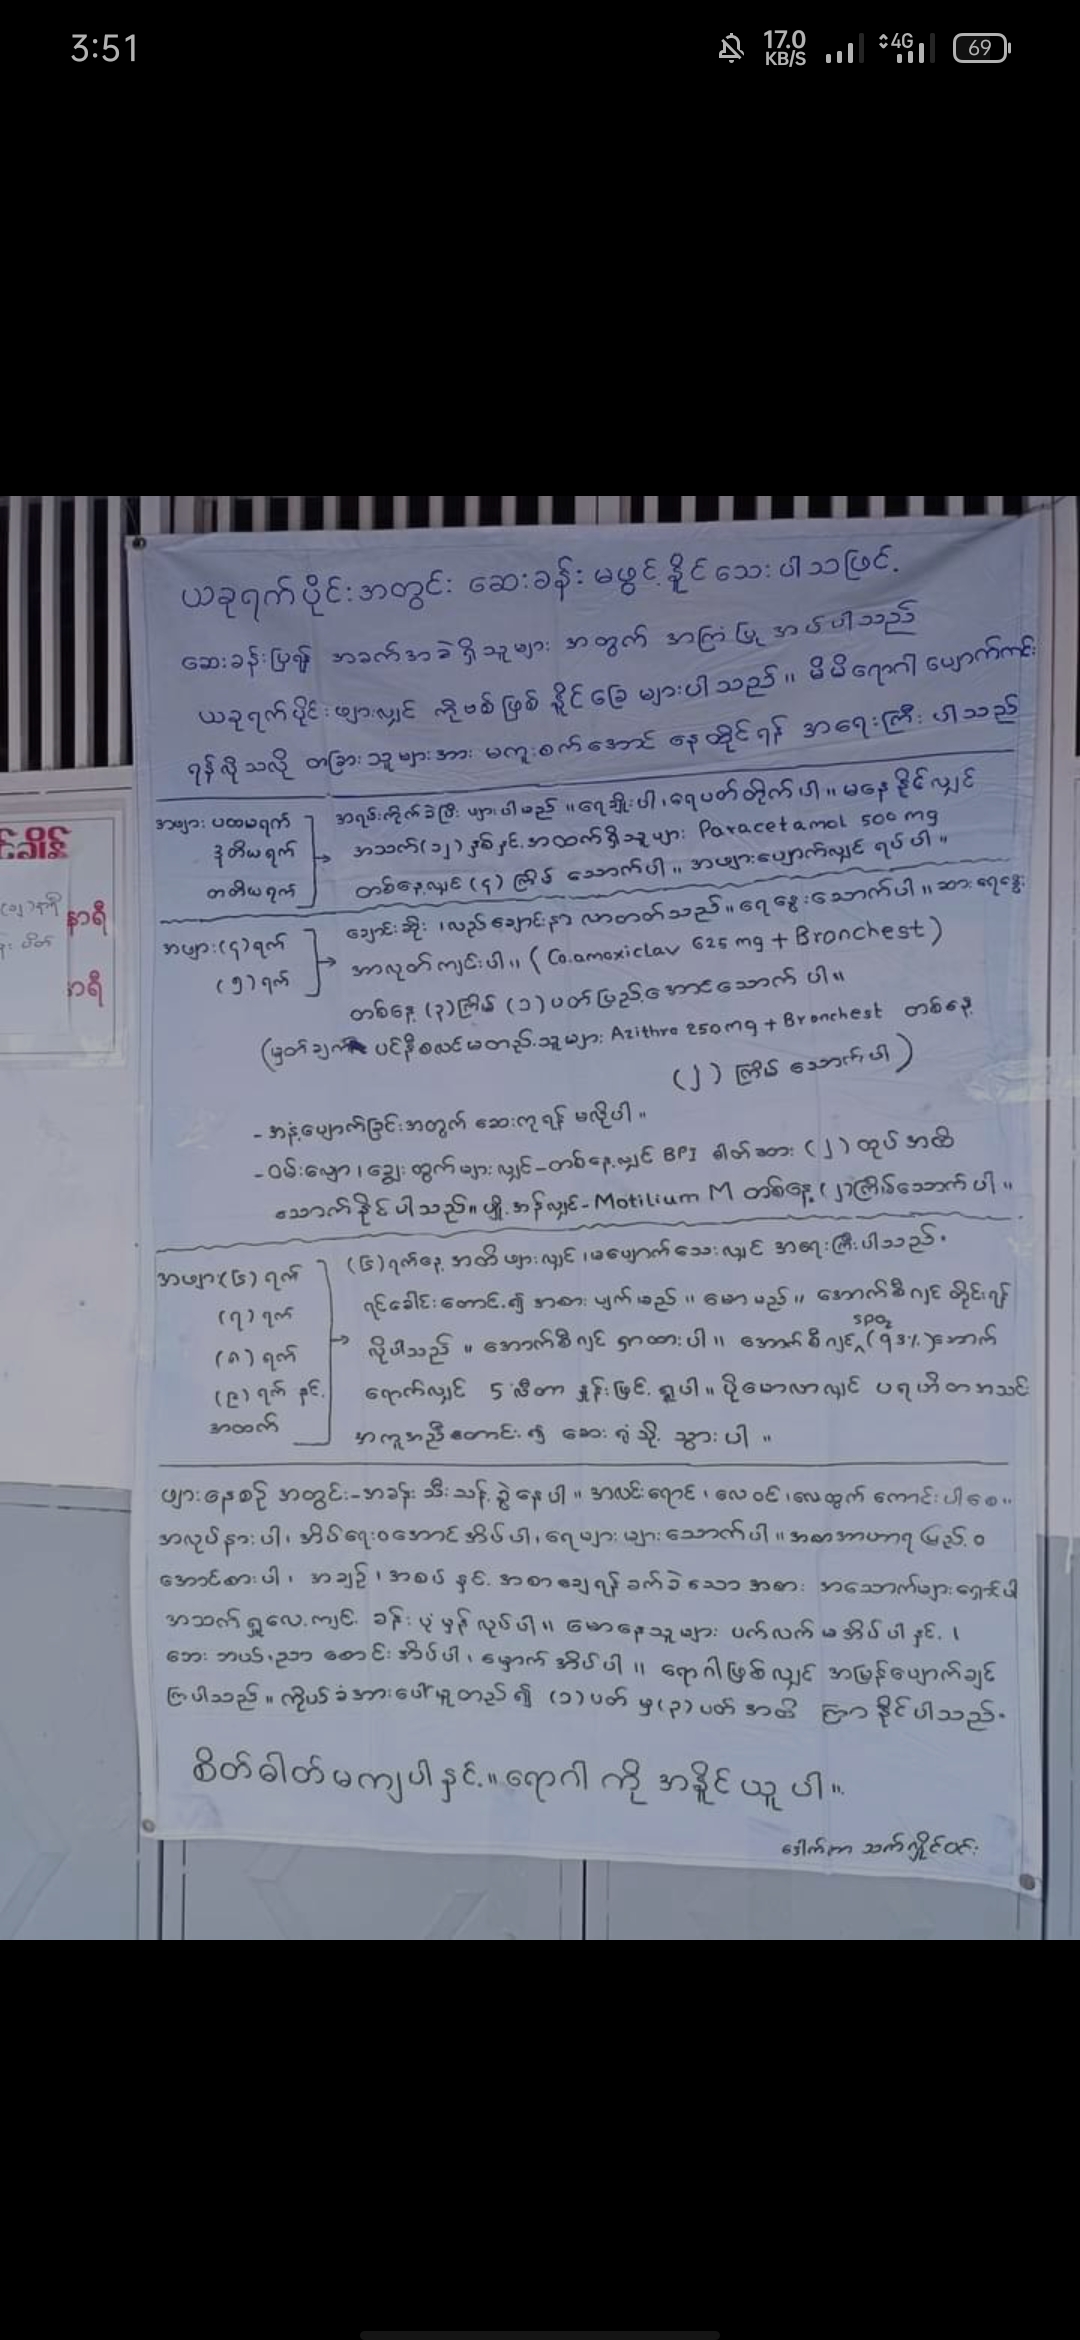 3:51
17.0
KB/S
4G
69
ယခုရက်ပိုင်းအတွင်း ဆေးခန်းမဖွင့်နိုင်သေးပါသဖြင့်
ဆေးခန်းပြရန် အခက်အခဲရှိသူများ အတွက် အကြံပြုအပ်ပါသည်
ယခုရက်ပိုင်းဖျားလျှင် ကိုဗစ်ဖြစ်နိုင်ခြေများပါသည်။ မိမိရောဂါပျောက်ကင်း
ရန်လိုသလို တခြားသူများအား မကူးစက်အောင် နေထိုင်ရန် အရေးကြီးပါသည်
အဖျား ပထမရက်
ဒုတိယရက်
တတိယရက်
အရမ်းကိုက်ခဲပြီး ဖျားပါမည်။ ရေချိုးပါ၊ ရေပတ်တိုက်ပါ။ မနေနိုင်လျှင်
အသက်(၁၂)နှစ်နှင့်အထက်ရှိသူများ Paracetamol 500 mg
တစ်နေ့လျှင် (၄) ကြိမ် သောက်ပါ။ အဖျားပျောက်လျှင် ရပ်ပါ။
အဖျား(၄)ရက်
(၅)ရက်
ချောင်းဆိုး၊ လည်ချောင်းနာ လာတတ်သည်။ ရေနွေးသောက်ပါ။ ဆားရေနွေး
အာလုတ်ကျင်းပါ။ (Co.amoxiclav 625 mg + Bronchest)
တစ်နေ့ (၃)ကြိမ် (၁)ပတ်ပြည့်အောင်သောက်ပါ။
(မှတ်ချက် ပင်နီစလင်မတည့်သူများ Azithro 250mg + Bronchest တစ်နေ့
(၂) ကြိမ် သောက်ပါ)
- အနံ့ပျောက်ခြင်းအတွက် ဆေးကုရန် မလိုပါ။
- ဝမ်းလျှော၊ ချွေးထွက်များလျှင် - တစ်နေ့လျှင် BPI ဓါတ်ဆား (၂) ထုပ်အထိ
သောက်နိုင်ပါသည်။ ပျို့အန်လျှင် - Motilium M တစ်နေ့ (၂)ကြိမ်သောက်ပါ။
အဖျား(၆)ရက်
(၇)ရက်
(၈)ရက်
(၉)ရက် နှင့်
အထက်
(၆)ရက်နေ့အထိ ဖျားလျှင်၊ မပျောက်သေးလျှင် အရေးကြီးပါသည်။
ရင်ခေါင်းတောင့်၍ အစားပျက်မည်။ မောမည်။ အောက်စီဂျင် တိုင်းရန်
လိုပါသည်။ အောက်စီဂျင် ရှာထားပါ။ အောက်စီဂျင် SPO₂ (93%)အောက်
ရောက်လျှင် 5 လီတာ နှုန်းဖြင့် ရှူပါ။ ပိုမောလာလျှင် ပရဟိတအသင်း
အကူအညီတောင်း၍ ဆေးရုံသို့ သွားပါ။
ဖျားနေစဉ် အတွင်း - အခန်းသီးသန့်ခွဲနေပါ။ အလင်းရောင်၊ လေဝင်၊ လေထွက် ကောင်းပါစေ။
အလုပ်နားပါ၊ အိပ်ရေးဝအောင်အိပ်ပါ၊ ရေများများသောက်ပါ။ အစာအာဟာရ ပြည့်ဝ
အောင်စားပါ၊ အချဉ်၊ အစပ် နှင့် အစာချေရန်ခက်ခဲသော အစားအသောက်များရှောင်ပါ
အသက်ရှူလေ့ကျင့်ခန်း ပုံမှန်လုပ်ပါ။ မောနေသူများ ပက်လက်မအိပ်ပါနှင့်၊
ဘေးဘယ်၊ ညာစောင်းအိပ်ပါ၊ မှောက်အိပ်ပါ။ ရောဂါဖြစ်လျှင် အမြန်ပျောက်ချင်
ကြပါသည်။ ကိုယ်ခံအားပေါ်မူတည်၍ (၁)ပတ် မှ (၃)ပတ် အထိ ကြာနိုင်ပါသည်။
စိတ်ဓါတ်မကျပါနှင့်။ ရောဂါကို အနိုင်ယူပါ။
ဒေါက်တာ သက်လှိုင်ဝင်း
နာရီ
နာရီ